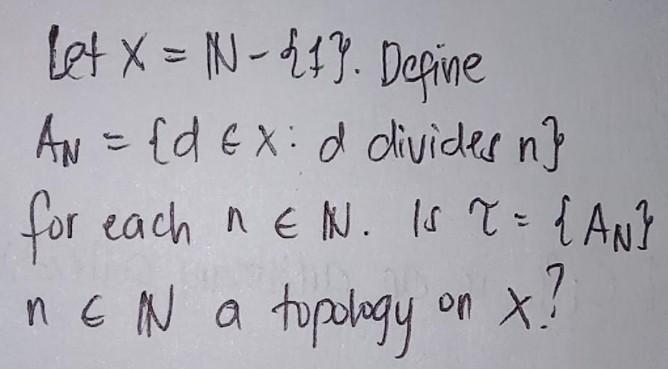 Let X = ℕ - {1}. Define
Aɴ = {d ∈ X: d divides n}
for each n ∈ ℕ. Is τ = {Aɴ}
n ∈ ℕ a topology on X?